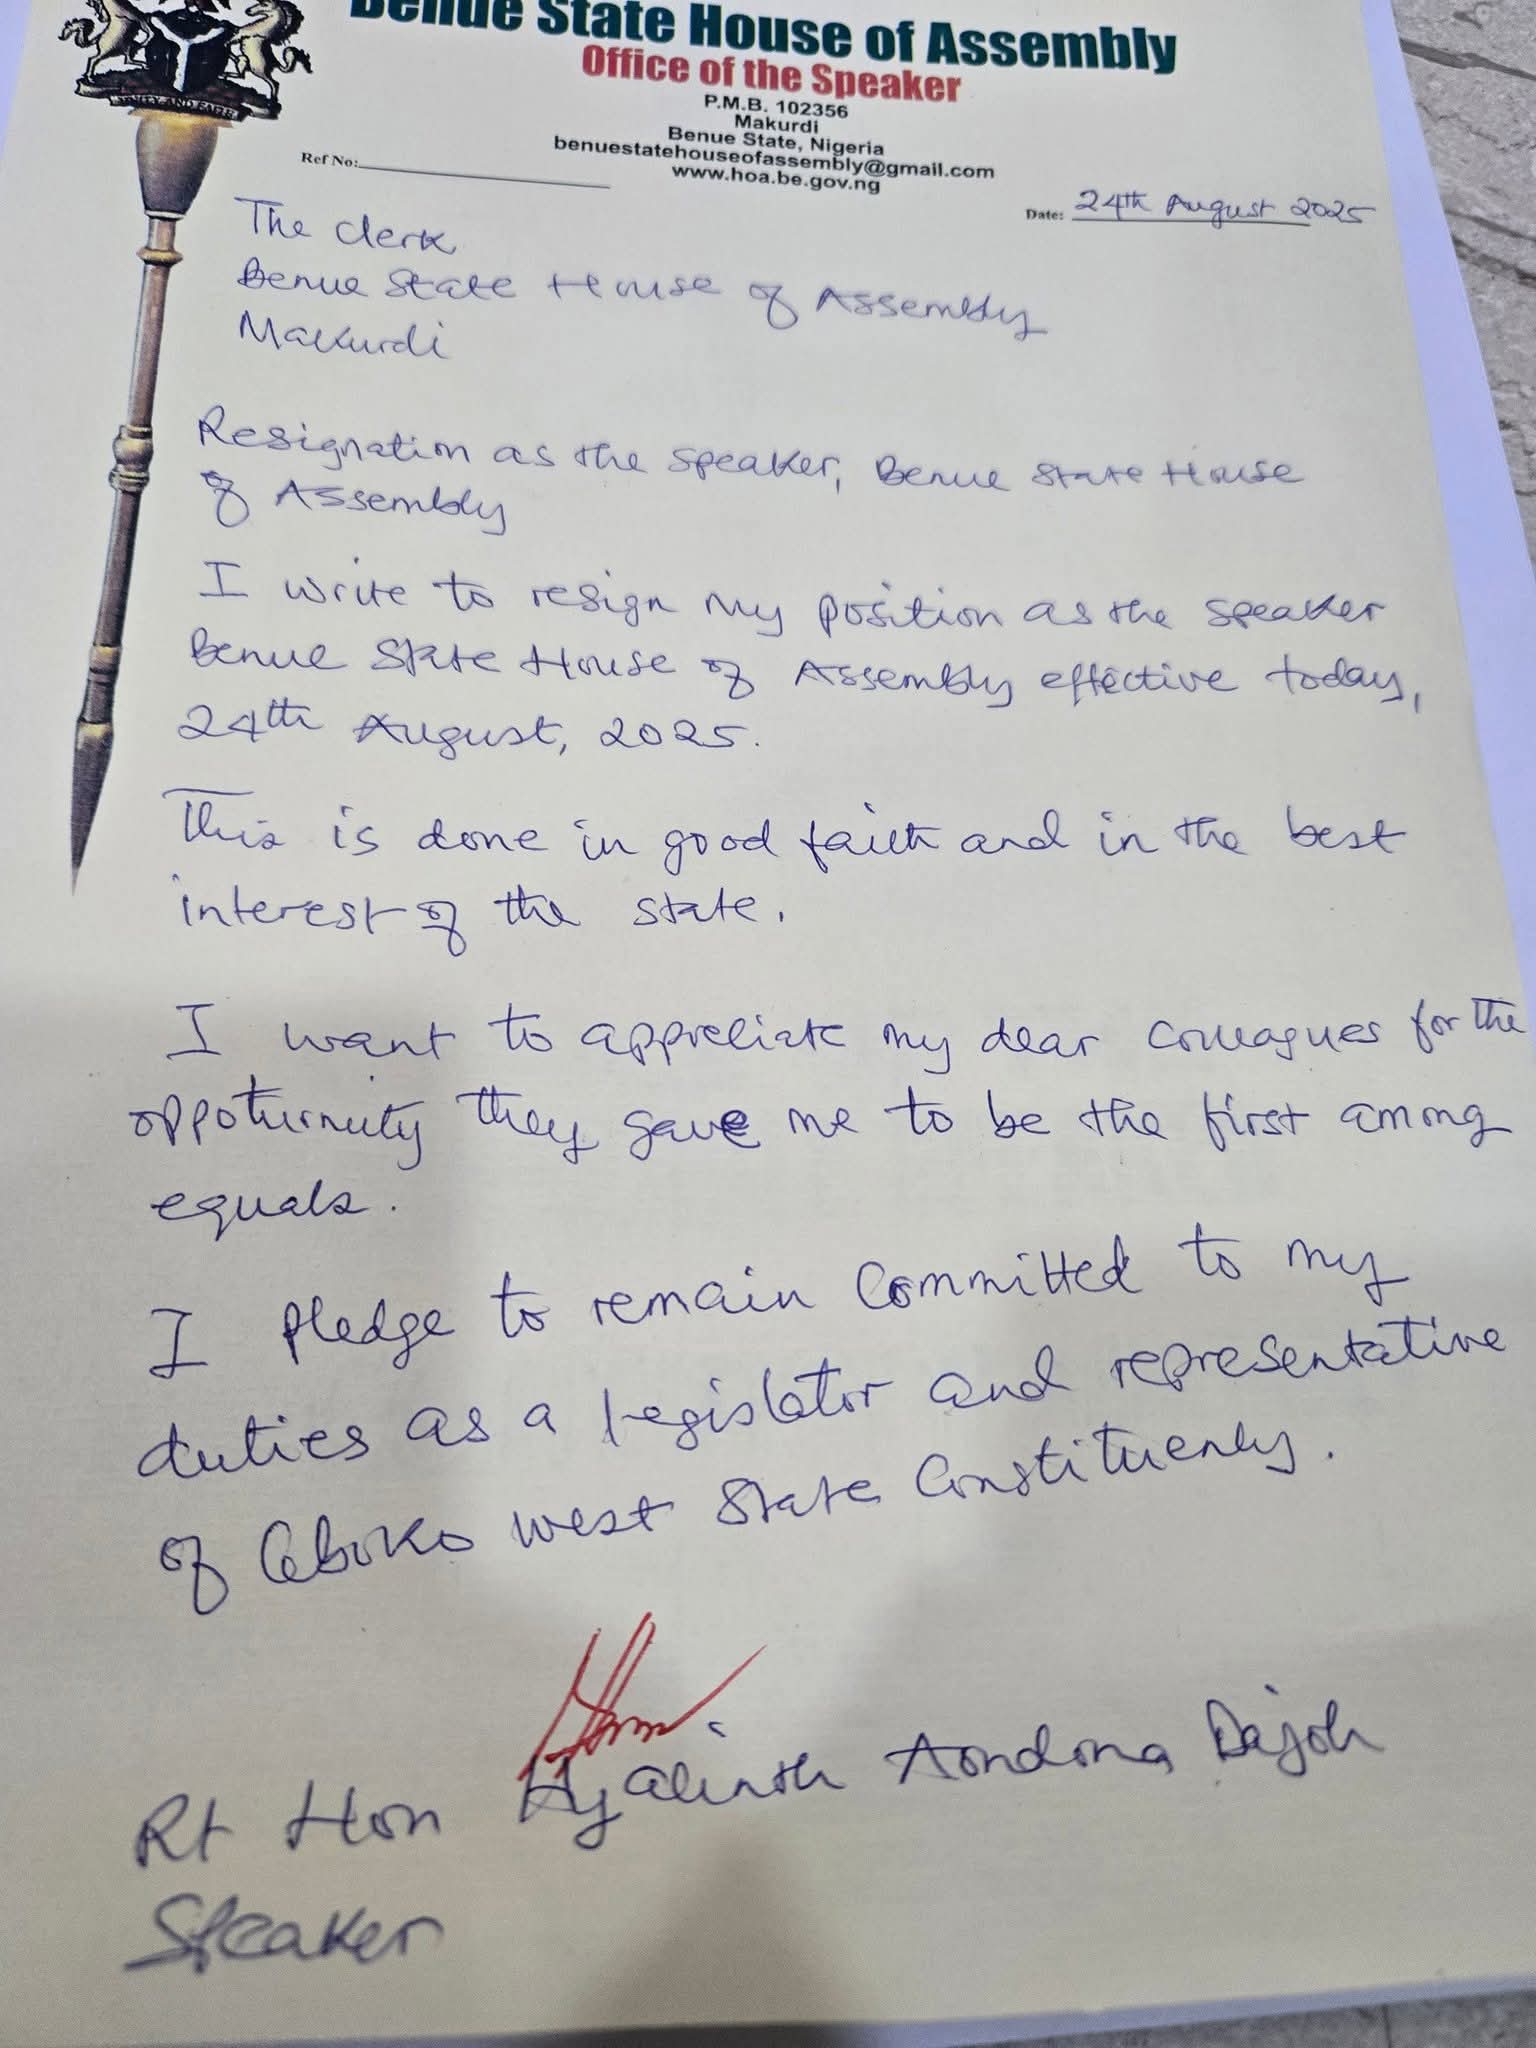 Benue State House of Assembly
Office of the Speaker
P.M.B. 102356
Makurdi
Benue State, Nigeria
benuestatehouseofassembly@gmail.com
www.hoa.be.gov.ng
Ref No:
Date: 24th August 2025
The Clerk
Benue State House of Assembly
Makurdi
Resignation as the Speaker, Benue State House
of Assembly
I write to resign my position as the Speaker
Benue State House of Assembly effective today,
24th August, 2025.
This is done in good faith and in the best
interest of the state.
I want to appreciate my dear colleagues for the
oppoturnuty they gave me to be the first among
equals.
I pledge to remain committed to my
duties as a legislator and representative
of Gboko west State Constituency.
Rt Hon Hyacinth Aondona Dajoh
Speaker